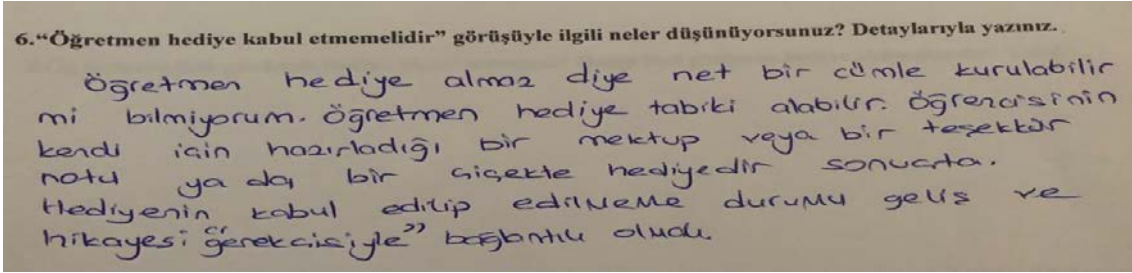 6.“Öğretmen hediye kabul etmemelidir” görüşüyle ilgili neler düşünüyorsunuz? Detaylarıyla yazınız.
Öğretmen hediye almaz diye net bir cümle kurulabilir
mi bilmiyorum. Öğretmen hediye tabiki alabilir. Öğrencisinin
kendi için hazırladığı bir mektup veya bir teşekkür
notu ya da bir çiçekte hediyedir sonuçta.
Hediyenin kabul edilip edilmeme durumu geliş ve
hikayesi “gerekçisiyle” bağlantılı olmalı.